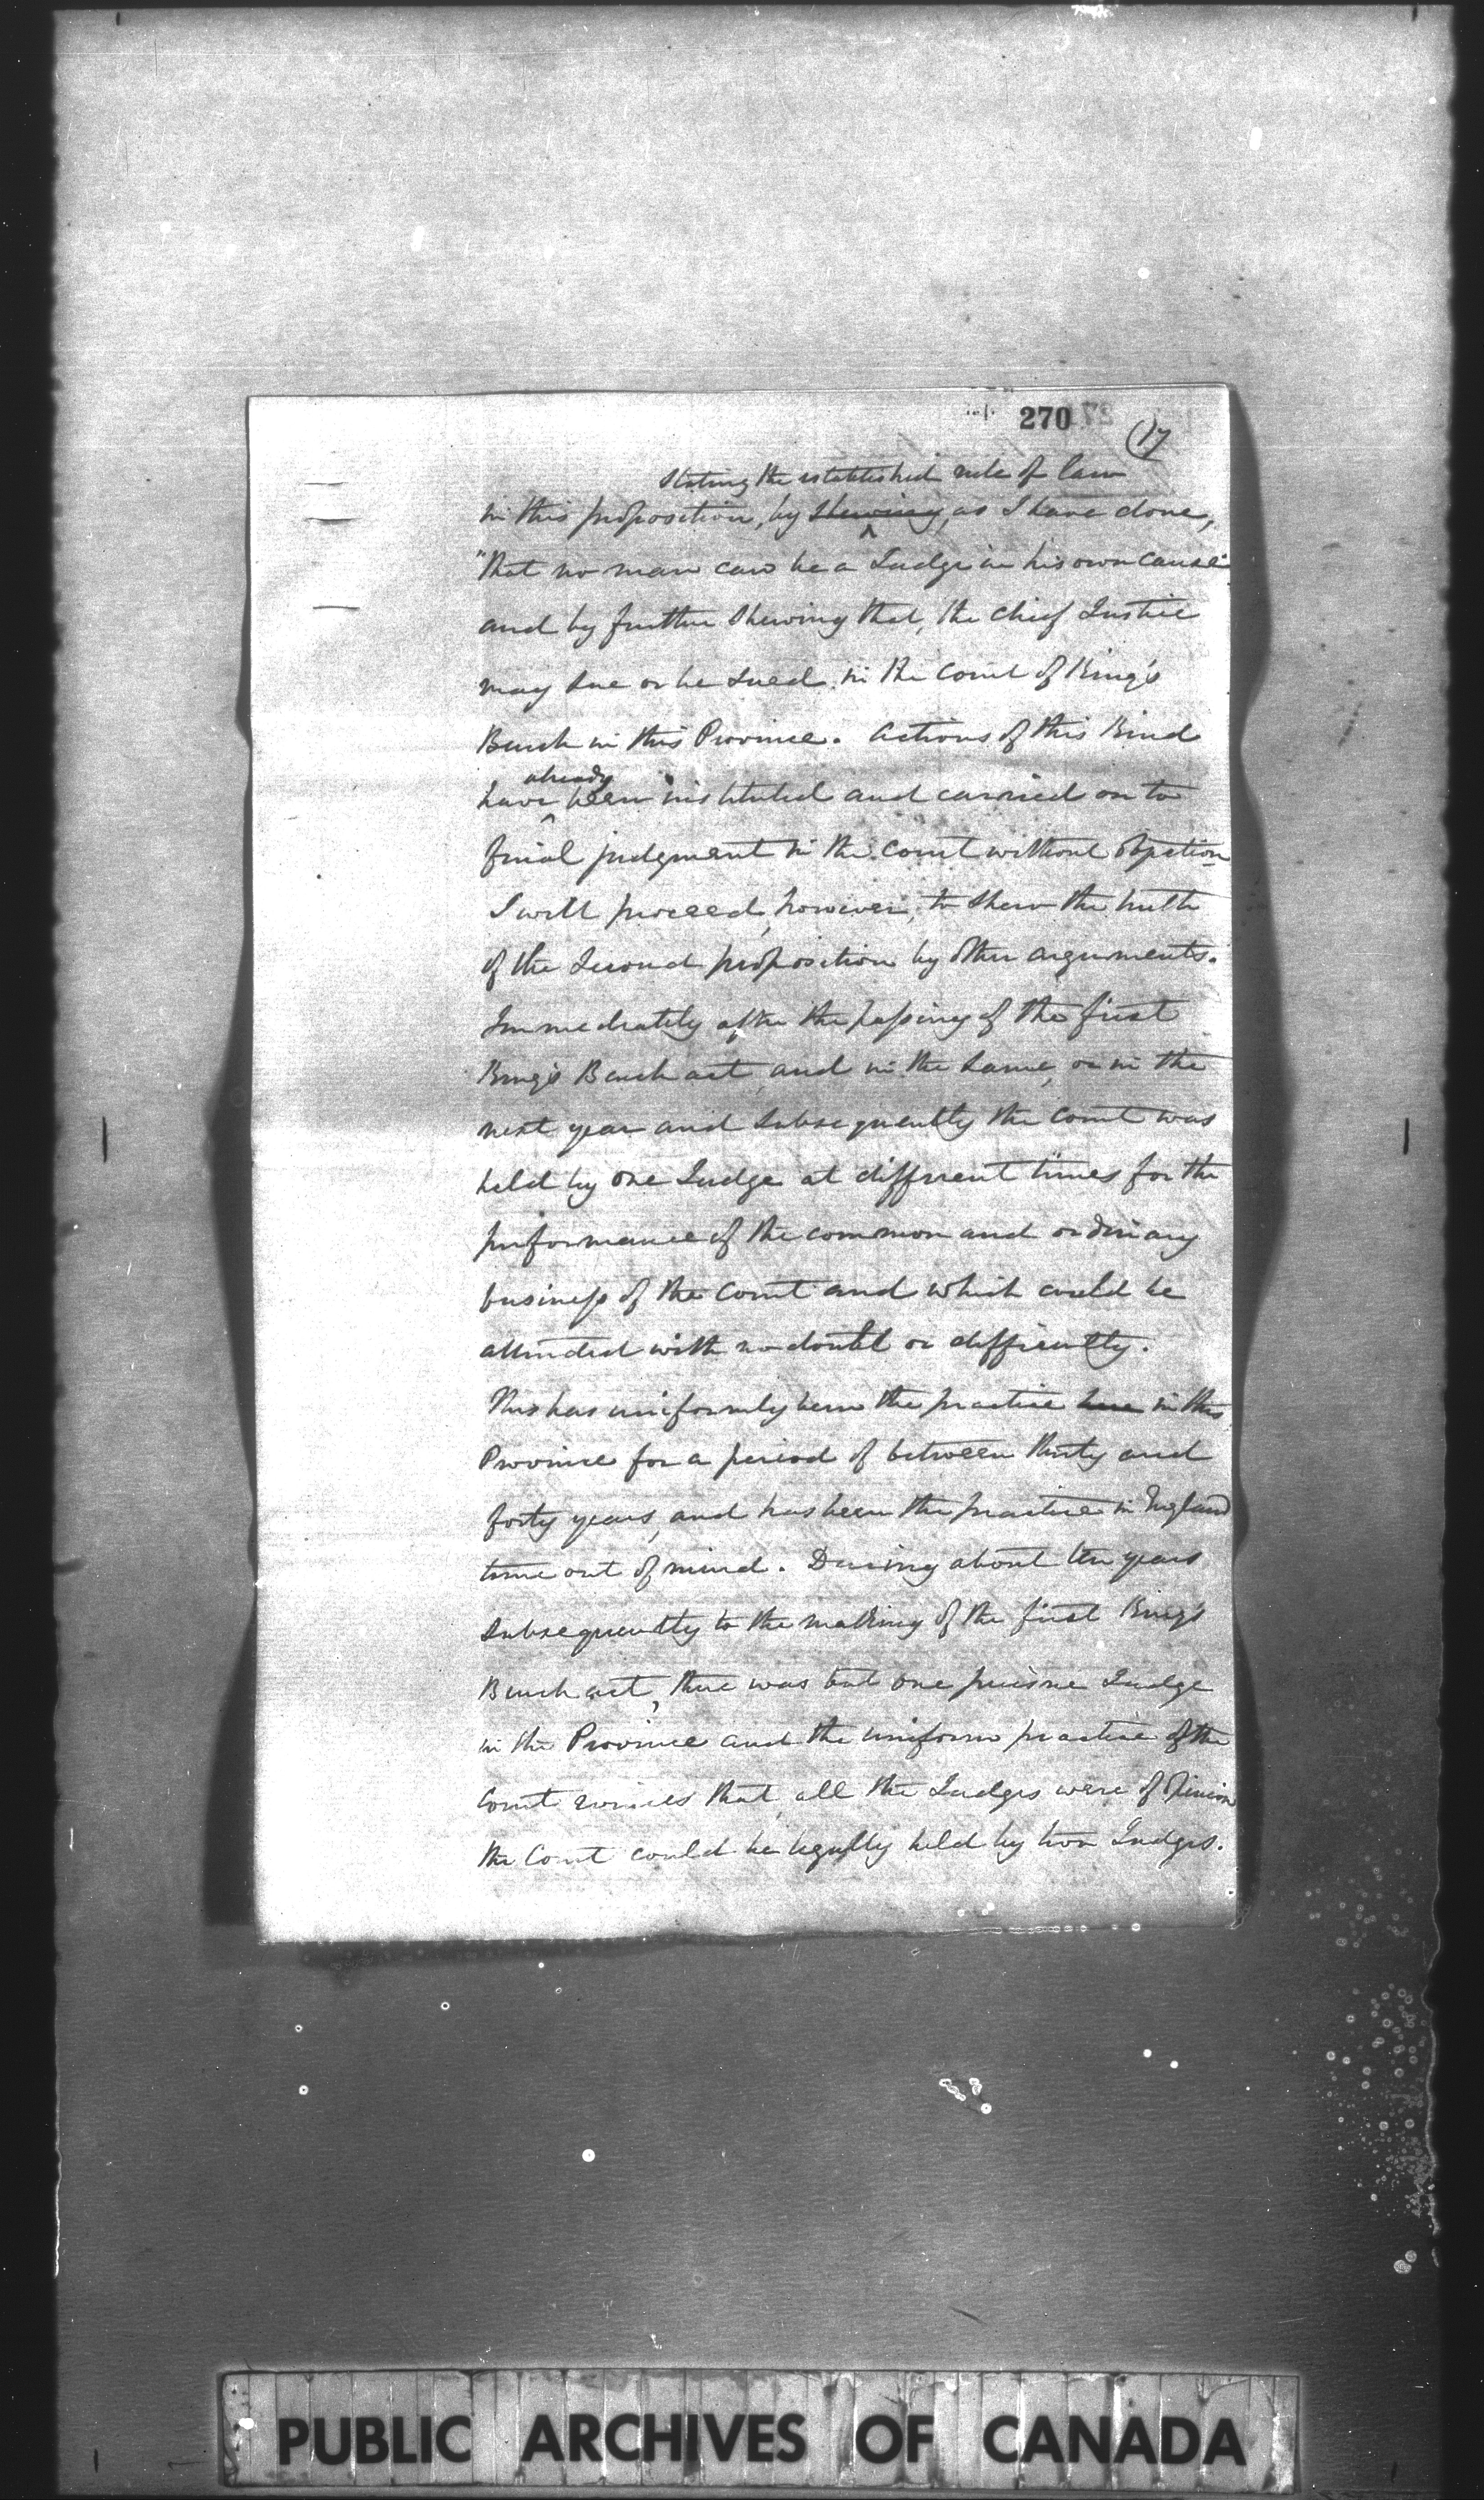 270
17
stating the established rule of law
in this proposition, by shewing, as I have done,
"That no man can be a Judge in his own cause"
and by further shewing that, the chief Justice
may sue or be sued in the Court of King's
Bench in this Province. Actions of this kind
already
have been instituted and carried on to
final judgment in the Court without objection
I will proceed, however, to shew the truth
of the second proposition by other arguments.
Immediately after the passing of the first
King's Bench act, and in the same, or in the
next year and subsequently the Court was
held by one Judge at different times for the
performance of the common and ordinary
business of the Court and which could be
attended with no doubt or difficulty.
This has uniformly been the practice here in this
Province for a period of between thirty and
forty years, and has been the practice in England
time out of mind. During about ten years
subsequently to the making of the first King's
Bench act, there was but one puisne Judge
in the Province and the uniform practice of the
Court evinces that, all the Judges were of opinion
the Court could be legally held by two Judges.
PUBLIC ARCHIVES OF CANADA